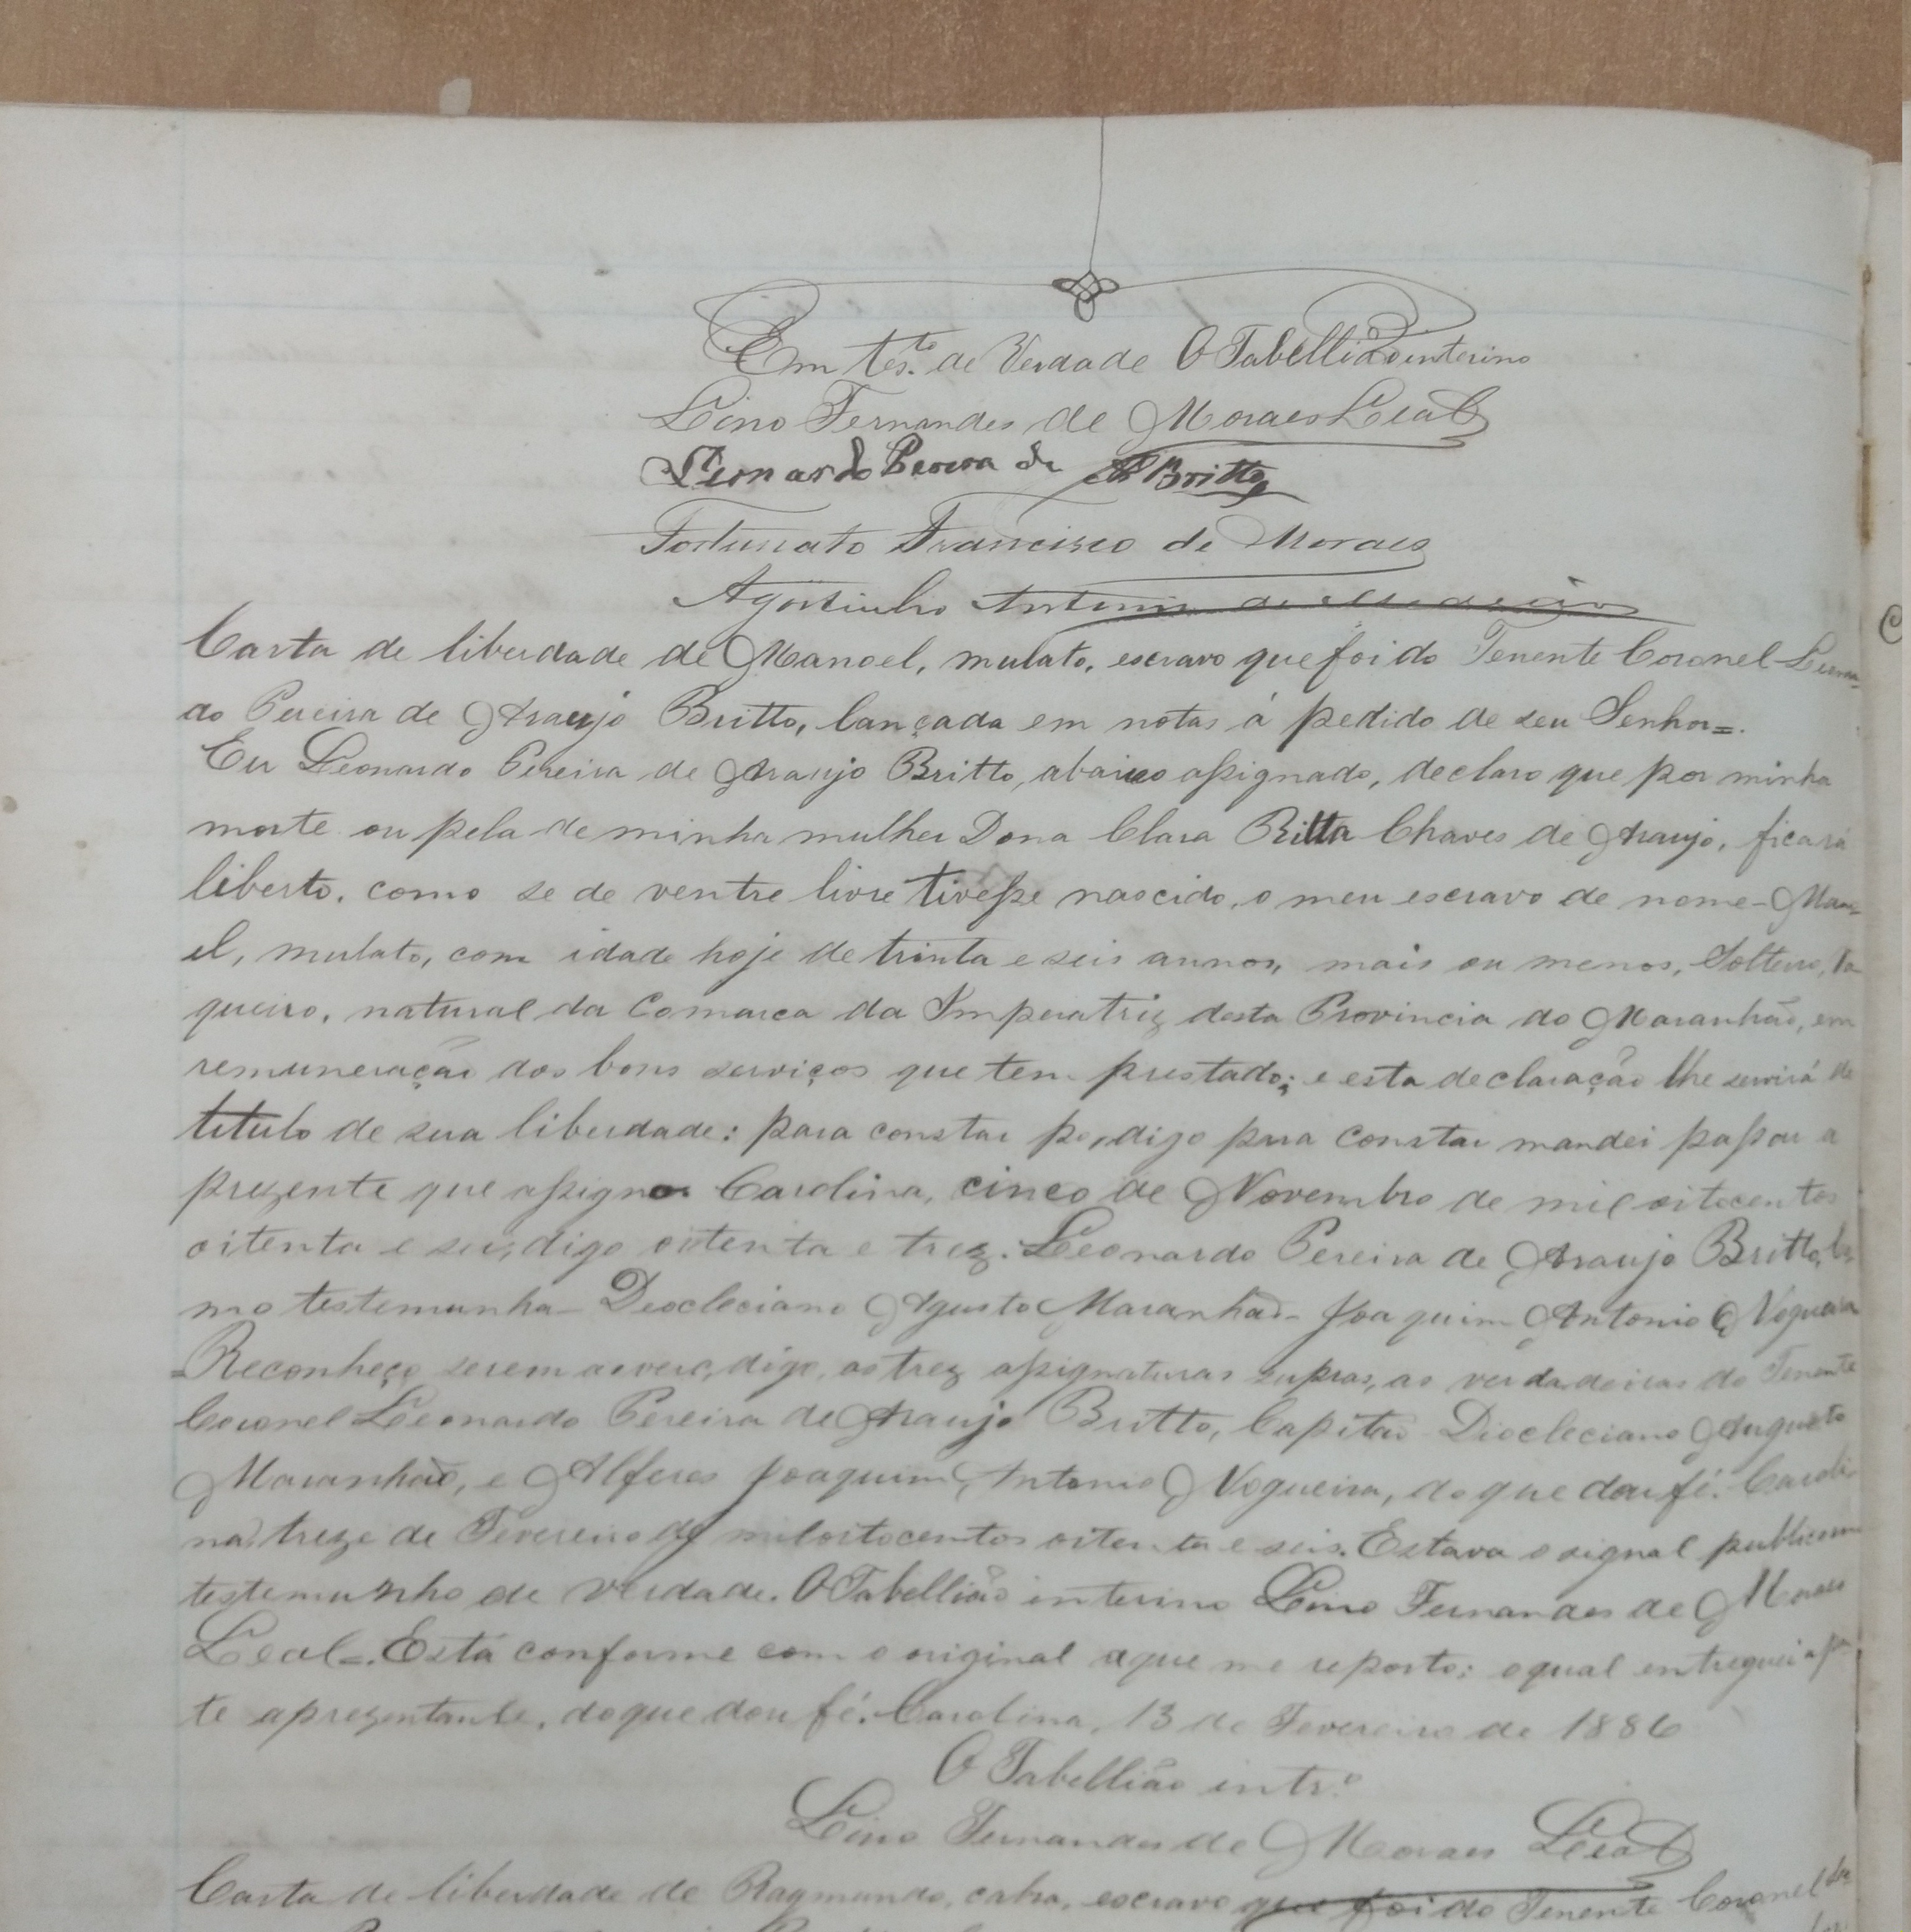 Em tes.to de Verdade O Tabellião interino
Lino Fernandes de Moraes Leal
Leonardo Pereira de A Britto
Fortunato Francisco de Moraes
Agostinho Antonio de
Carta de liberdade de Manoel, mulato, escravo que foi do Tenente Coronel Leonar-
do Pereira de Araujo Britto, lançada em notas á pedido de seu Senhor=.
Eu Leonardo Pereira de Araujo Britto, abaixo assignado, declaro que por minha
morte ou pela de minha mulher Dona Clara Ritta Chaves de Araujo, ficará
liberto, como se de ventre livre tivesse nascido, o meu escravo de nome-Mano-
el, mulato, com idade hoje de trinta e seis annos, mais ou menos, Solteiro, va
queiro, natural da Comarca da Imperatriz desta Provincia do Maranhão, em
remuneração dos bons serviços que tem prestado; e esta declaração lhe servirá de
titulo de sua liberdade: para constar po, digo para constar mandei passar a
prezente que assigno. Carolina, cinco de Novembro de mil oitocentos
oitenta e seis, digo oitenta e trez. Leonardo Pereira de Araujo Britto, Co
mo testemunha- Deocleciano Agusto Maranhão- Joaquim Antonio Nogueira
Reconheço serem as verd, digo, as trez assignaturas supras, as verdadeiras do Tenente
Coronel Leonardo Pereira de Araujo Britto, Capitão Diocleciano Augusto
Maranhão, e Alferes Joaquim Antonio Nogueira, do que dou fé. Caroli
na, treze de Fevereiro de mil oitocentos oitenta e seis. Estava o signal publico em
testemunho de verdade. O Tabellião interino Lino Fernandes de Moraes
Leal=. Está conforme com o original a que me reporto; o qual entreguei a par
te aprezentante, do que dou fé. Carolina, 13 de Fevereiro de 1886
O Tabellião intr.o
Lino Fernandes de Moraes Leal
Carta de liberdade de Raymundo, cabra, escravo que foi do Tenente Coronel